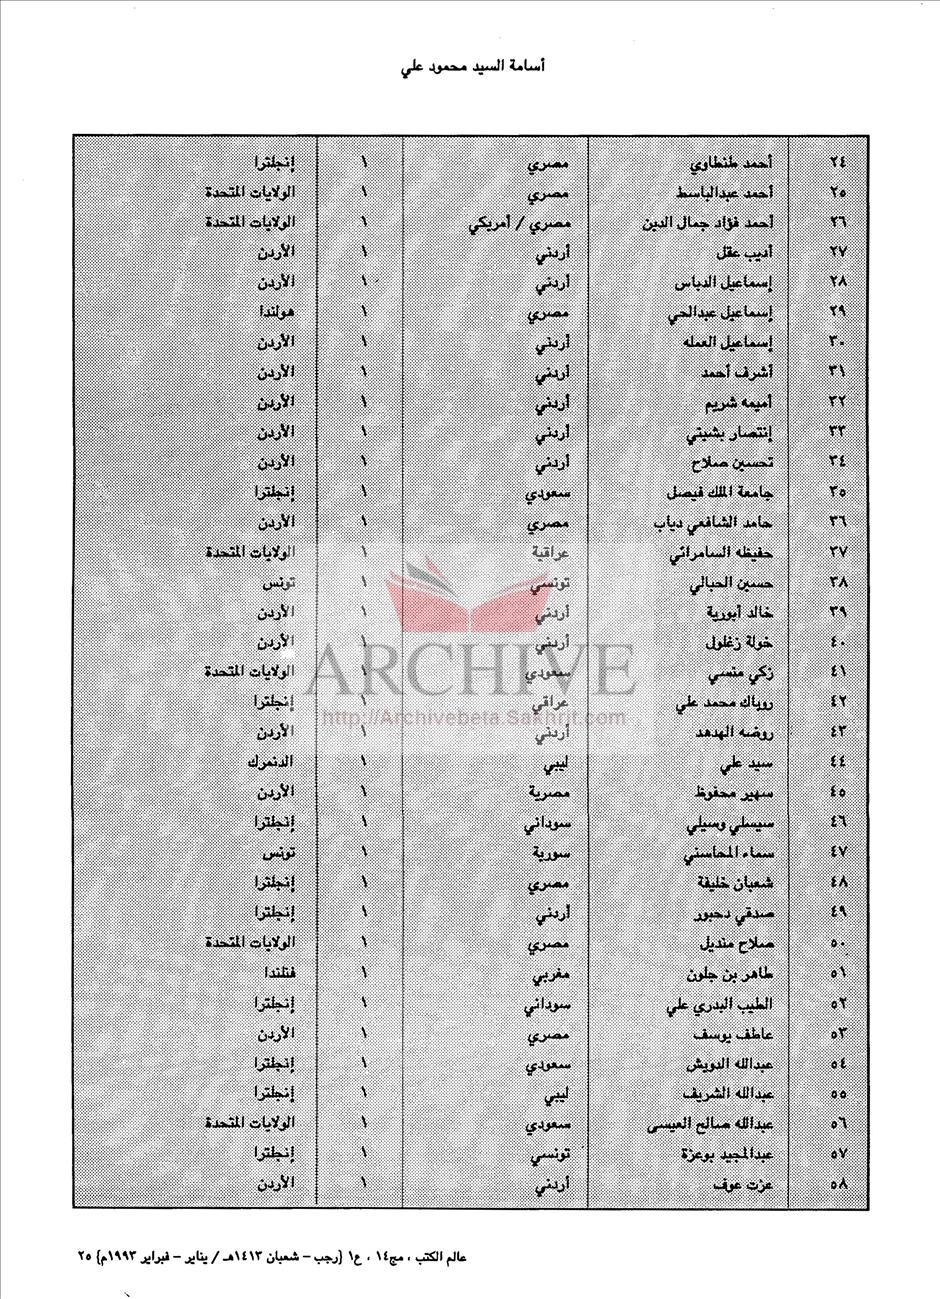 أسامة السيد محمود علي
٢٤ أحمد طنطاوي مصري ١ إنجلترا
٢٥ أحمد عبدالباسط مصري ١ الولايات المتحدة
٢٦ أحمد فؤاد جمال الدين مصري / أمريكي ١ الولايات المتحدة
٢٧ أديب عقل أردني ١ الأردن
٢٨ إسماعيل الدباس أردني ١ الأردن
٢٩ إسماعيل عبدالحي مصري ١ هولندا
٣٠ إسماعيل العمله أردني ١ الأردن
٣١ أشرف أحمد أردني ١ الأردن
٣٢ أميمه شريم أردني ١ الأردن
٣٣ إنتصار بشيتي أردني ١ الأردن
٣٤ تحسين صلاح أردني ١ الأردن
٣٥ جامعة الملك فيصل سعودي ١ إنجلترا
٣٦ حامد الشافعي دياب مصري ١ الأردن
٣٧ حفيظه السامرائي عراقية ١ الولايات المتحدة
٣٨ حسين الحبالي تونسي ١ تونس
٣٩ خالد أبورية أردني ١ الأردن
٤٠ خولة زغلول أردني ١ الأردن
ARCHIVE
٤١ زكي منسي سعودي ١ الولايات المتحدة
٤٢ روباك محمد علي عراقي ١ إنجلترا
http://Archivebeta.Sakhrit.com
٤٣ روضه الهدهد أردني ١ الأردن
٤٤ سيد علي ليبي ١ الدنمرك
٤٥ سهير محفوظ مصرية ١ الأردن
٤٦ سيسلي وسيلي سوداني ١ إنجلترا
٤٧ سماء المحاسني سورية ١ تونس
٤٨ شعبان خليفة مصري ١ إنجلترا
٤٩ صدقي دحبور أردني ١ إنجلترا
٥٠ صلاح منديل مصري ١ الولايات المتحدة
٥١ طاهر بن جلون مغربي ١ فنلندا
٥٢ الطيب البدري علي سوداني ١ إنجلترا
٥٣ عاطف يوسف مصري ١ الأردن
٥٤ عبدالله الدويش سعودي ١ إنجلترا
٥٥ عبدالله الشريف ليبي ١ إنجلترا
٥٦ عبدالله صالح العيسى سعودي ١ الولايات المتحدة
٥٧ عبدالمجيد بوعزة تونسي ١ إنجلترا
٥٨ عزت عوف أردني ١ الأردن
عالم الكتب ، مج١٤ ، ع١ (رجب – شعبان ١٤١٣هـ / يناير – فبراير ١٩٩٣م) ٢٥